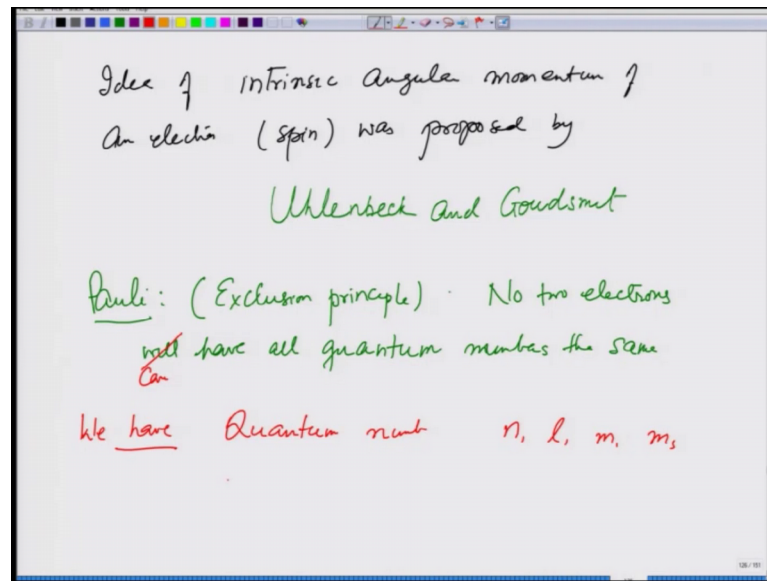 Idea of intrinsic angular momentum of
an electron (spin) was proposed by
Uhlenbeck and Goudsmit
Pauli: (Exclusion principle). No two electrons
will have all quantum numbers the same
Can
We have Quantum numb n, l, m, ms
126 / 151